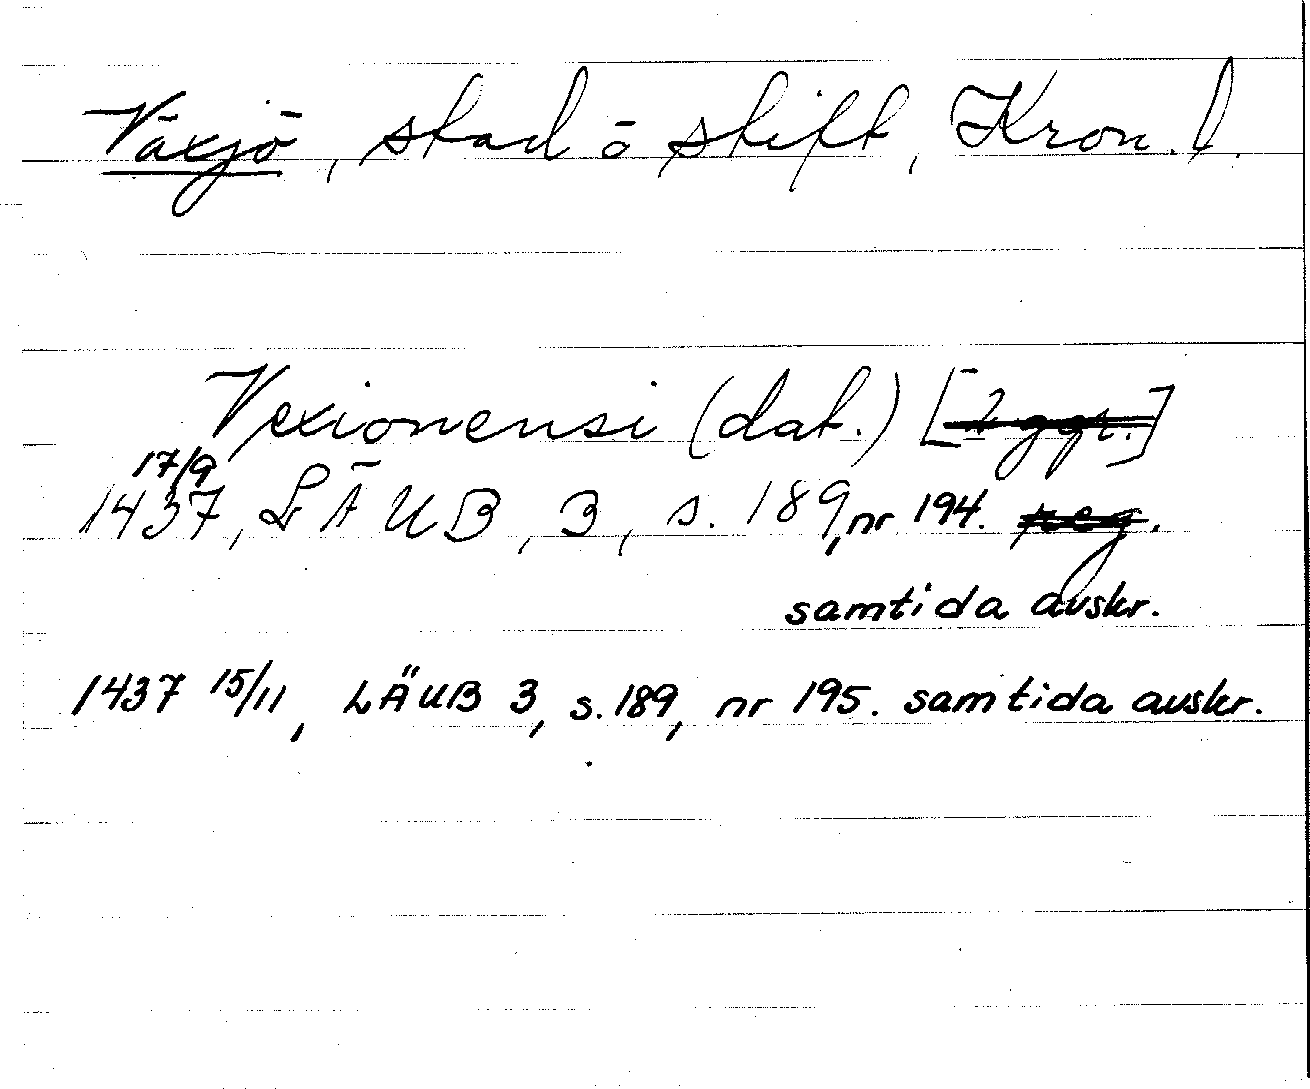 Växjö, stad o stift, Kron. l.
Vexionensi (dat.) [2 ggr.]
17/9
1437, LÄUB, 3, s. 189, nr 194. reg.
samtida avskr.
1437 15/11, LÄUB 3, s. 189, nr 195. samtida avskr.